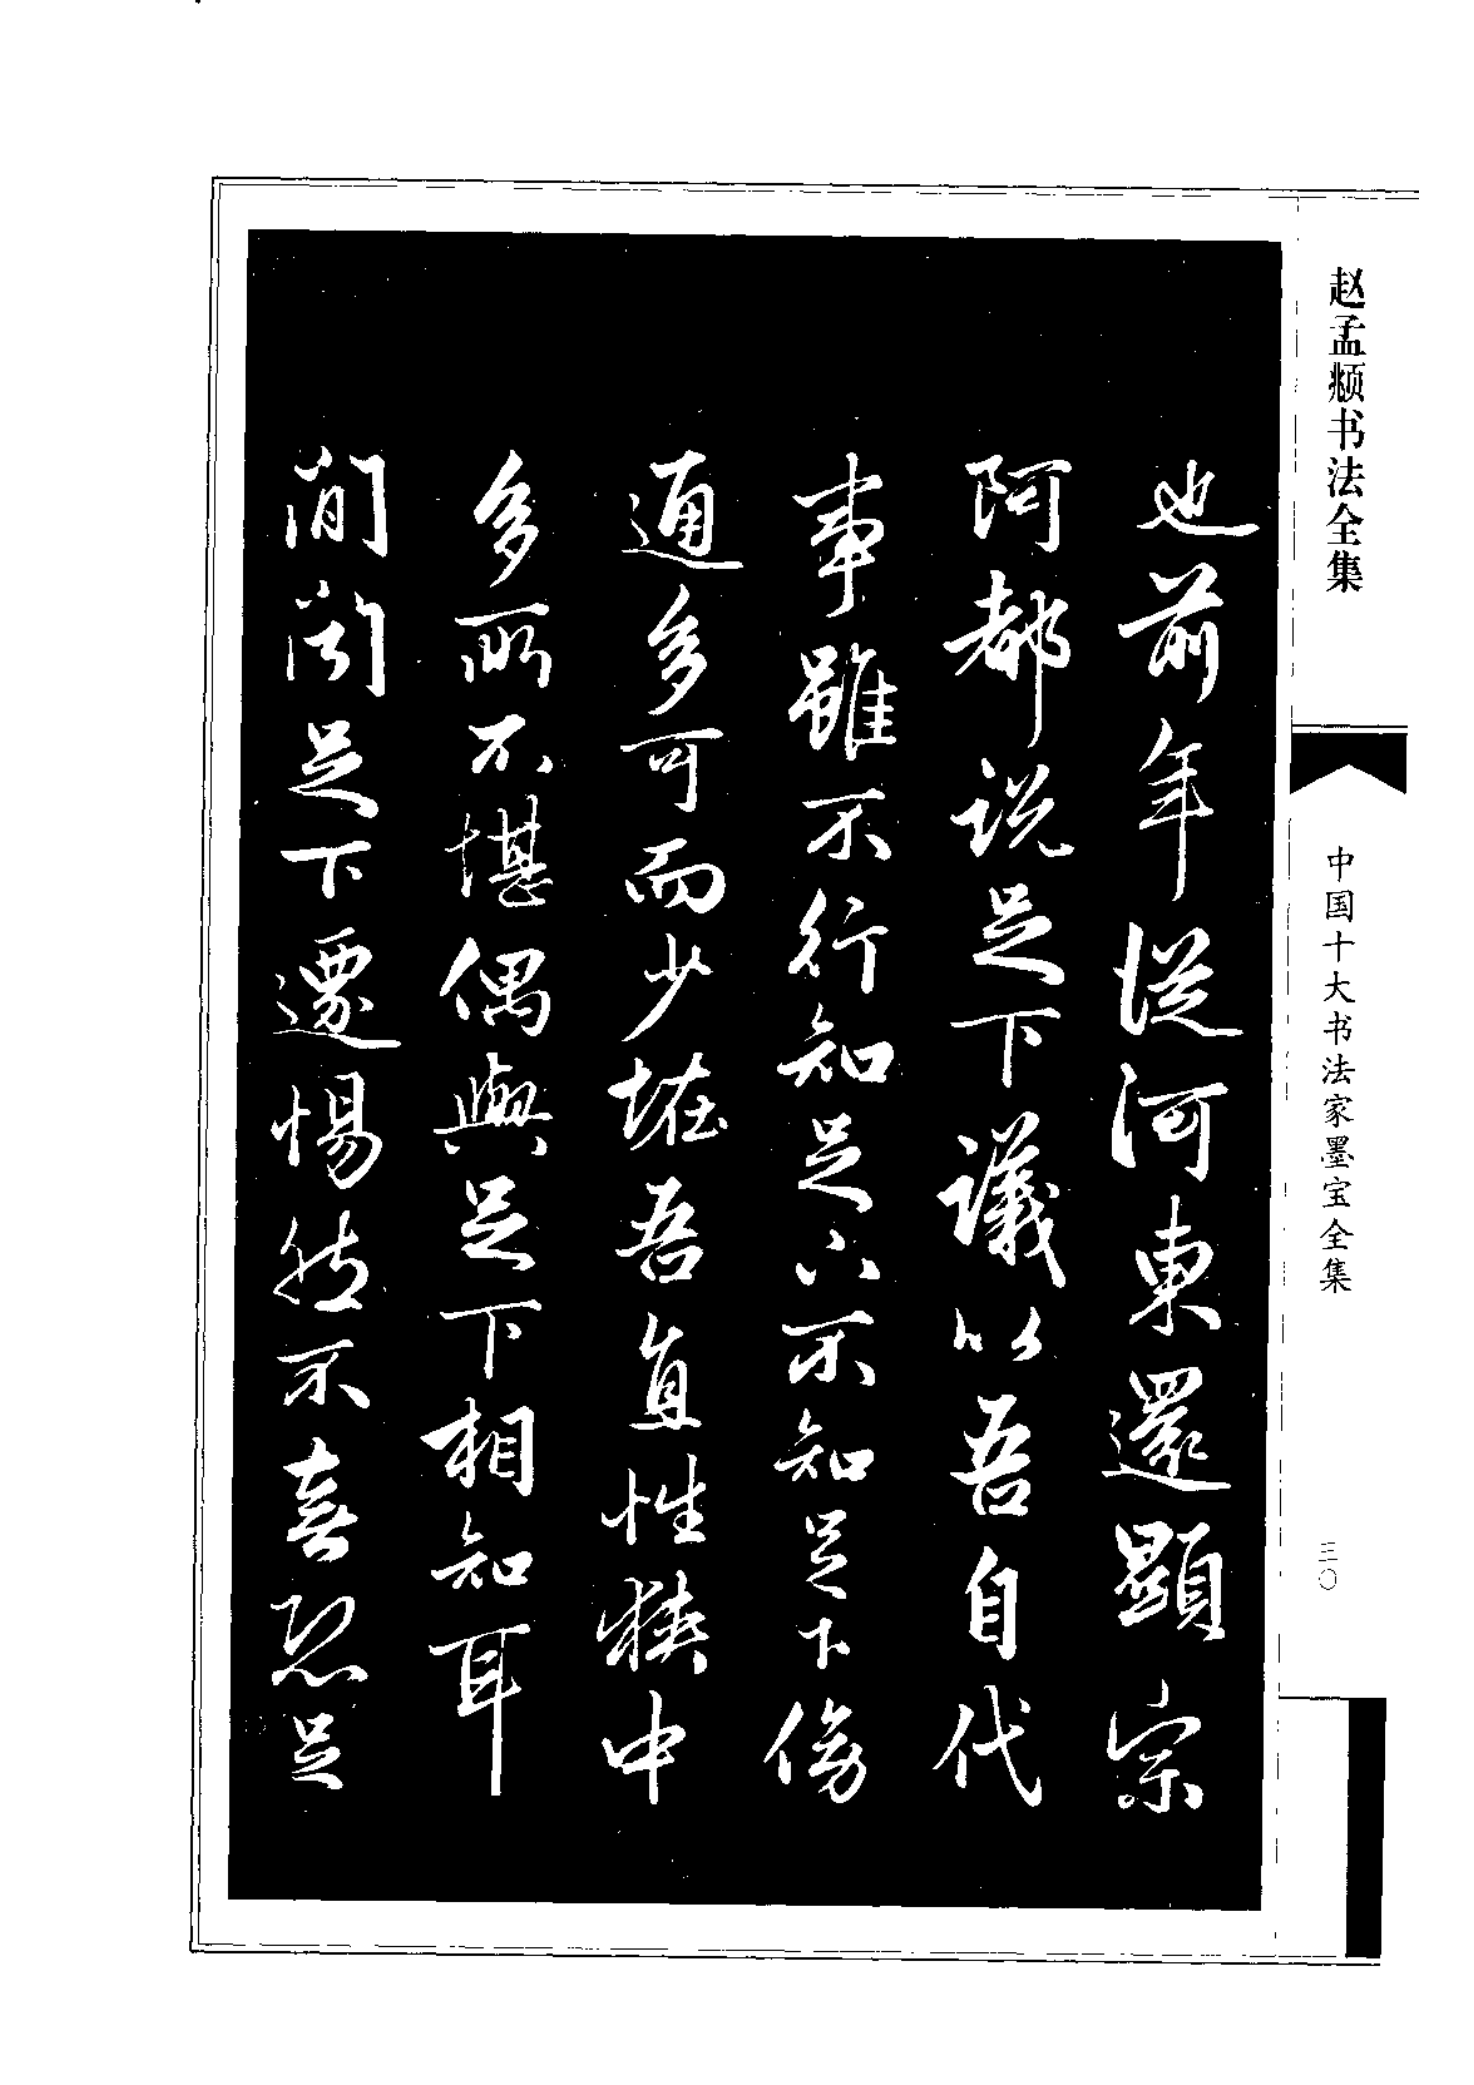 赵孟頫书法全集
中国十大书法家墨宝全集
三〇
也前年從河東還顯宗
阿都説足下議以吾自代
事雖不行知足下不知足下傍
通多可而少恠吾直性狹中
多所不堪偶與足下相知耳
間聞足下遷惕然不喜恐足